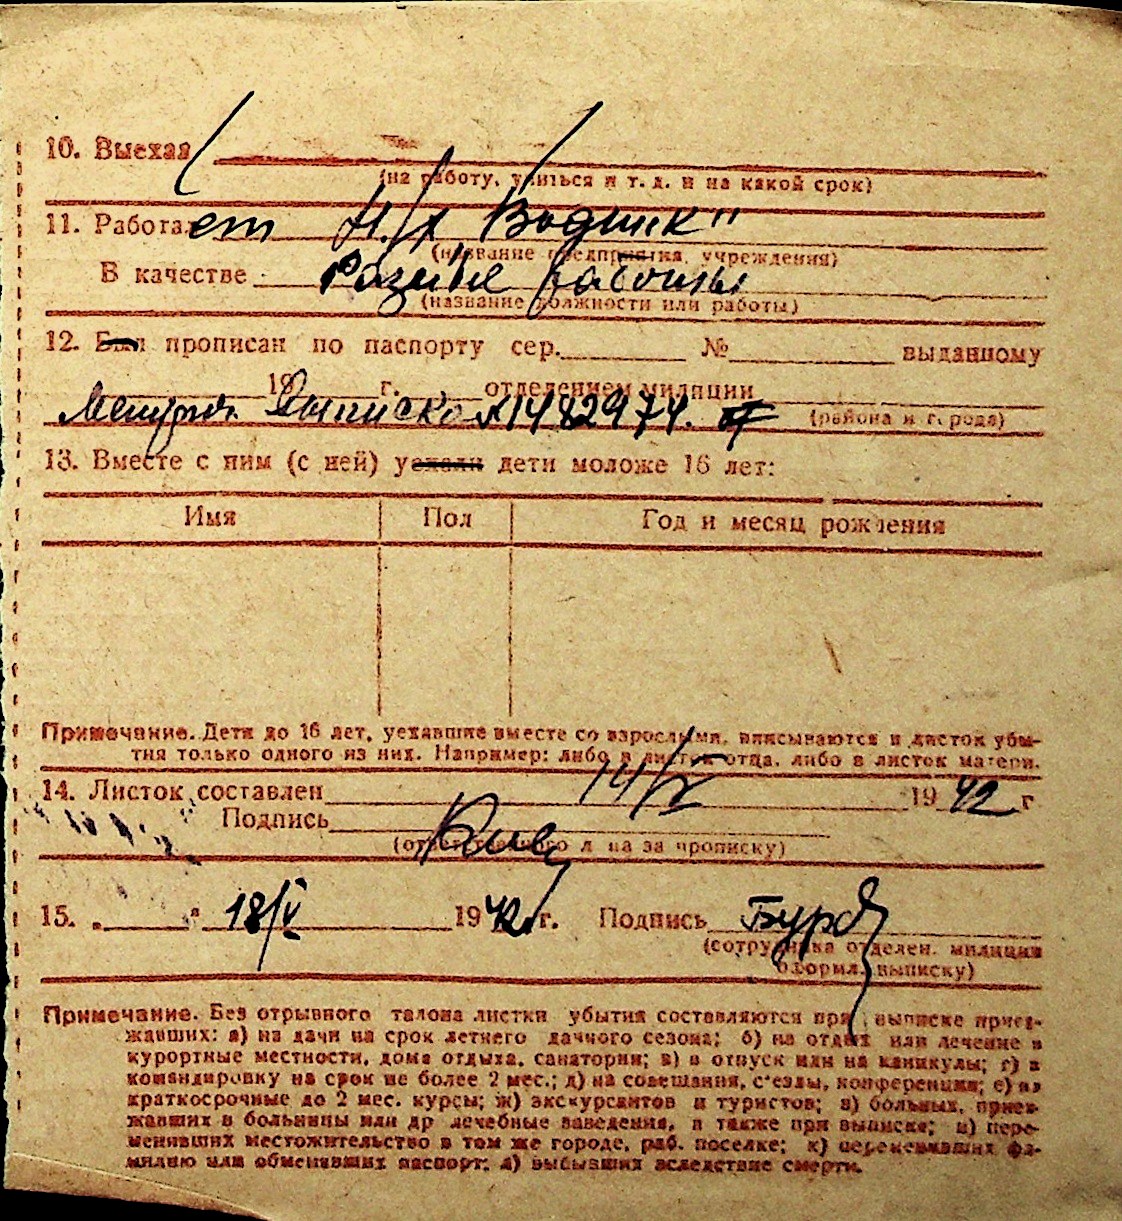 10. Выехал
(на работу, учиться и т. д. и на какой срок)
11. Работает "Водник"
(название предприятия, учреждения)
В качестве Разные работы
(название должности или работы)
12. Был прописан по паспорту сер. № выданному
19 г. отделением милиции
№ 1482974.
(района и города)
13. Вместе с ним (с ней) уехали дети моложе 16 лет:
Имя Пол Год и месяц рождения
Примечание. Дети до 16 лет, уехавшие вместе со взрослыми, вписываются в листок убы-
тия только одного из них. Например: либо в листок отца, либо в листок матери.
14. Листок составлен 14/V 1942 г
Подпись
(ответственного л на за прописку)
15. „ " 18/V 1942 г. Подпись
(сотрудника отделен. милиции
оформл. выписку)
Примечание. Без отрывного талона листки убытия составляются при выписке приез-
жавших: а) на дачи на срок летнего дачного сезона; б) на отдых или лечение в
курортные местности, дома отдыха, санатории; в) в отпуск или на каникулы; г) в
командировку на срок не более 2 мес.; д) на совещания, с'езды, конференции; е) на
краткосрочные до 2 мес. курсы; ж) экскурсантов и туристов; з) больных, приез-
жавших в больницы или др лечебные заведения, а также при выписке; и) пере-
менивших местожительство в том же городе, раб. поселке; к) переменивших фа-
милию или обменявших паспорт; л) выбывших вследствие смерти.